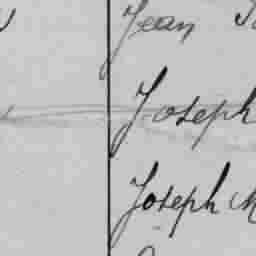 Jean
Joseph
Joseph M